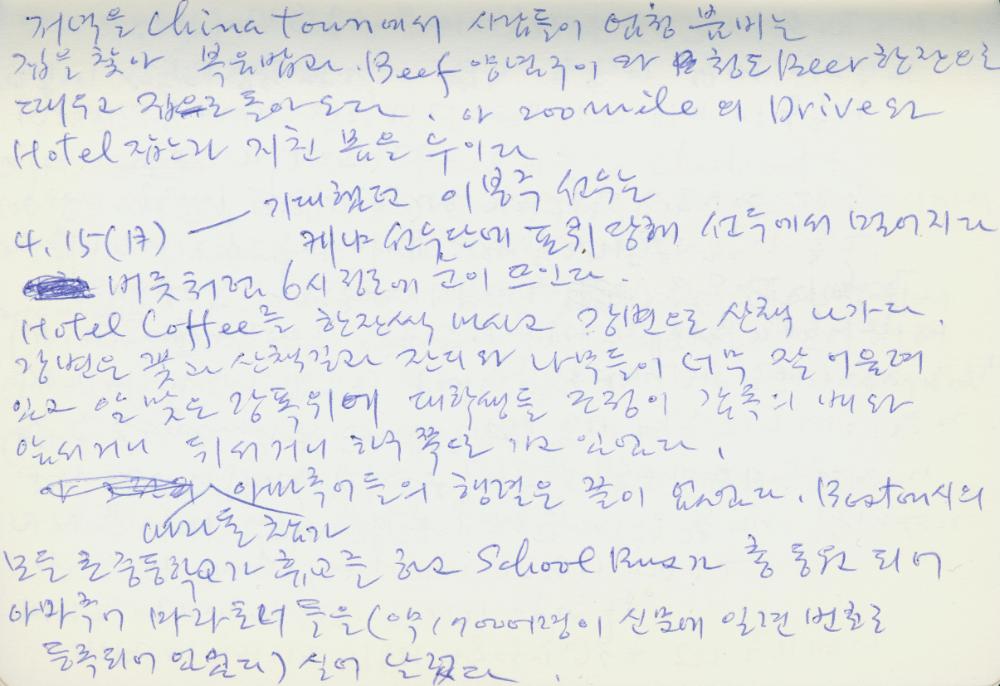 저녁을 China town에서 사람들이 엄청 붐비는
집을 찾아 볶음밥과 Beef 양념구이 와 청도 Beer 한잔으로
때우고 집으로 돌아오다. 야 200mile 의 Drive와
Hotel 잡느라 지친 몸을 누이다
기대했던 이봉주 선수는
4.15(화) 케냐 선수단에 포위 당해 선두에서 멀어지다
버릇처럼 6시 정도에 눈이 뜨인다.
Hotel Coffee를 한잔씩 마시고 강변으로 산책 나가다.
강변은 꽃과 산책길과 잔디와 나무들이 너무 잘 어울려
있고 알맞은 강폭위에 대학생들 조정이 감독의 배와
앞서거니 뒤서거니 하구 쪽으로 가고 있었다.
아마추어들의 행렬은 끝이 없었다. Boston시의
마라톤 참가
모든 초중등학교가 휴교를 하고 School Bus가 총 동원 되어
아마추어 마라토너 들을 (약 번호로
등록되어 있었다) 실어 날랐다.